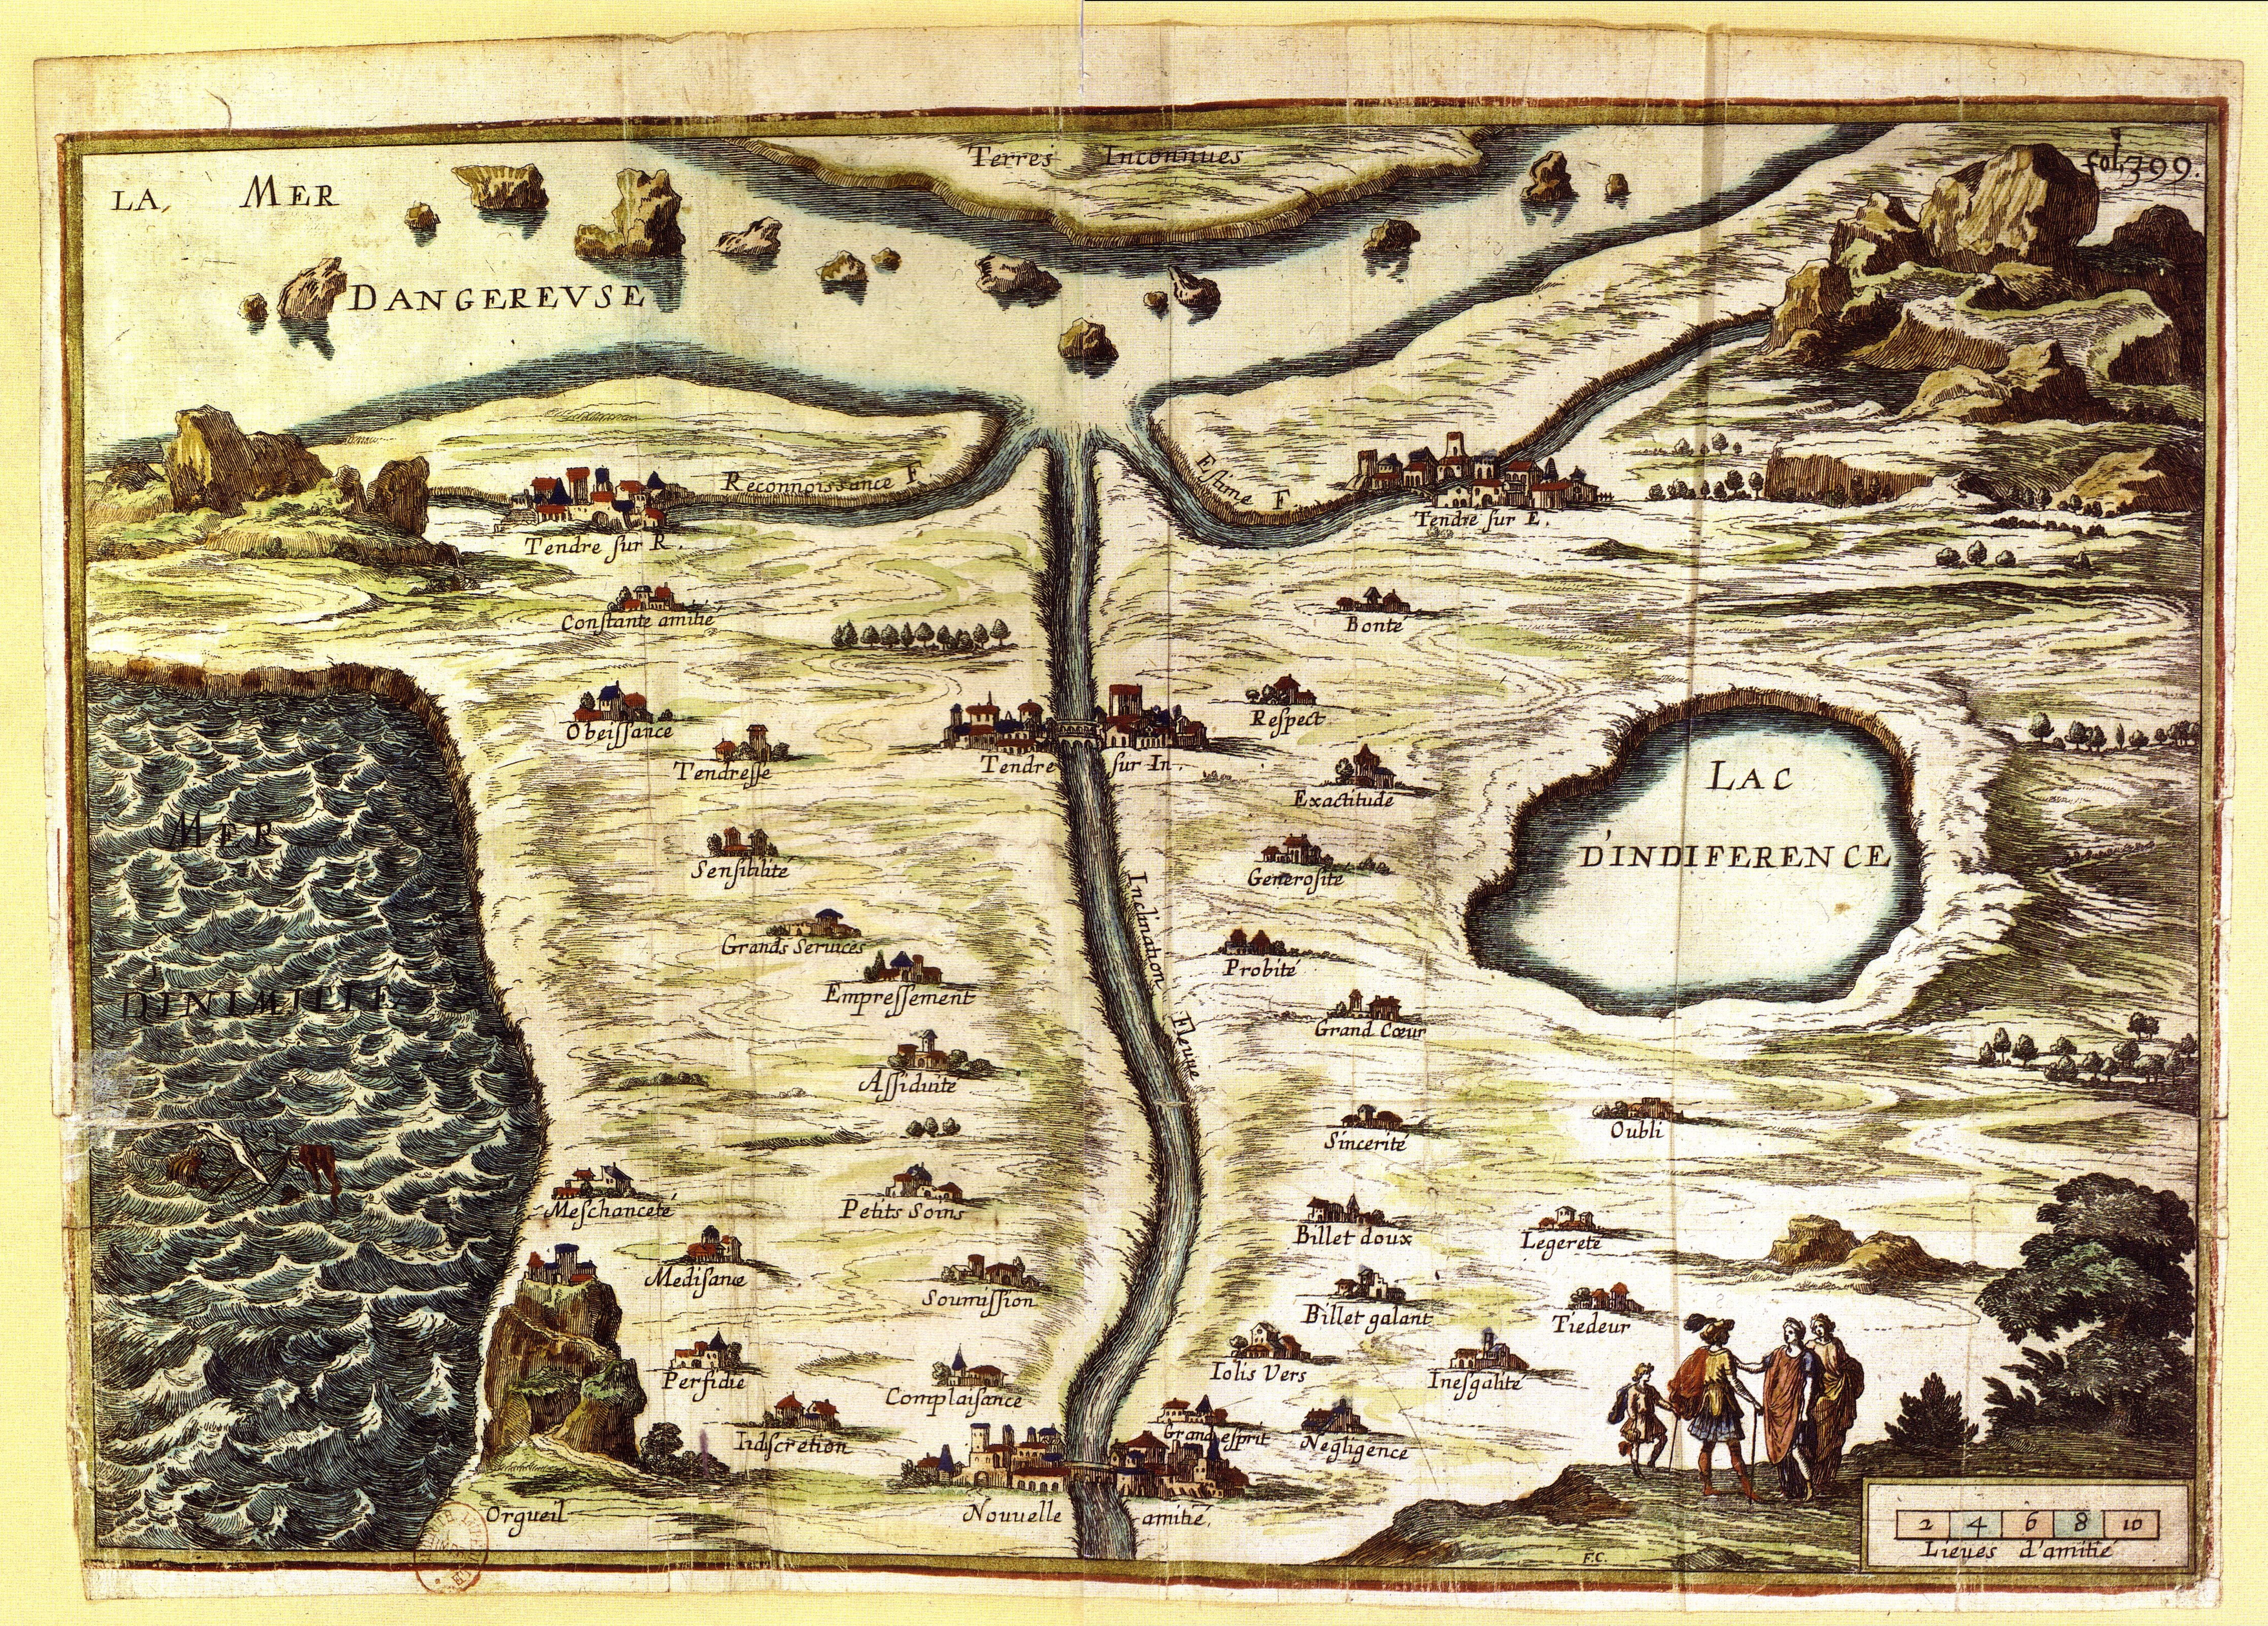 Terres Inconnues
fol. 399.
LA MER
DANGEREVSE
Reconnoissance F
Estime F
Tendre sur R.
Tendre sur E.
Constante amitié
Bonté
Obeissance
Respect
Tendresse
Tendre sur In.
Exactitude
LAC
D'INDIFERENCE
MER
D'INIMITIÉ
Sensibilité
Generosité
Inclination Fleuue
Grands Seruices
Probité
Empressement
Grand Cœur
Assiduité
Sincerité
Oubli
Meschanceté
Petits Soins
Billet doux
Legereté
Medisance
Soumission
Billet galant
Tiedeur
Perfidie
Complaisance
Iolis Vers
Inesgalité
Indiscretion
Grand esprit
Negligence
Orgueil
Nouuelle amitié.
2 4 6 8 10
Lieues d'amitié
F.C.